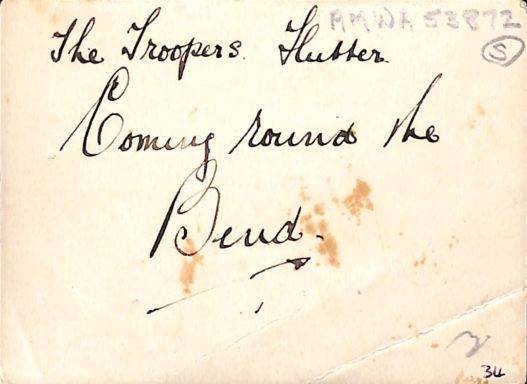 AMWA 53872
S
The Troopers Flutter.
Coming round the
Bend.
34